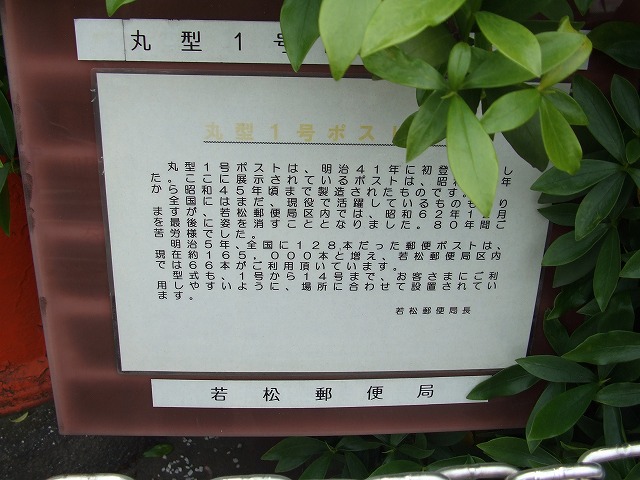 丸型1号
丸型1号ポスト
丸型1号ポストは、明治41年に初登 し
た。ここに展示されているポストは、昭和 年
から昭和45年頃まで製造されたものです。
全国にはまだ、現役で活躍しているものもあり
ますが、若松郵便局区内では、昭和62年1 月
を最後に姿を消すこととなりました。80年間ご
苦労様でした。
明治5年、全国に128本だった郵便ポストは、
現在約165,000本と増え、若松郵便局区内
では66本がご利用頂いています。
型式も、1号から14号まで、お客さまにご利
用しやすいように、場所に合わせて設置されてい
ます。
若松郵便局長
若松郵便局